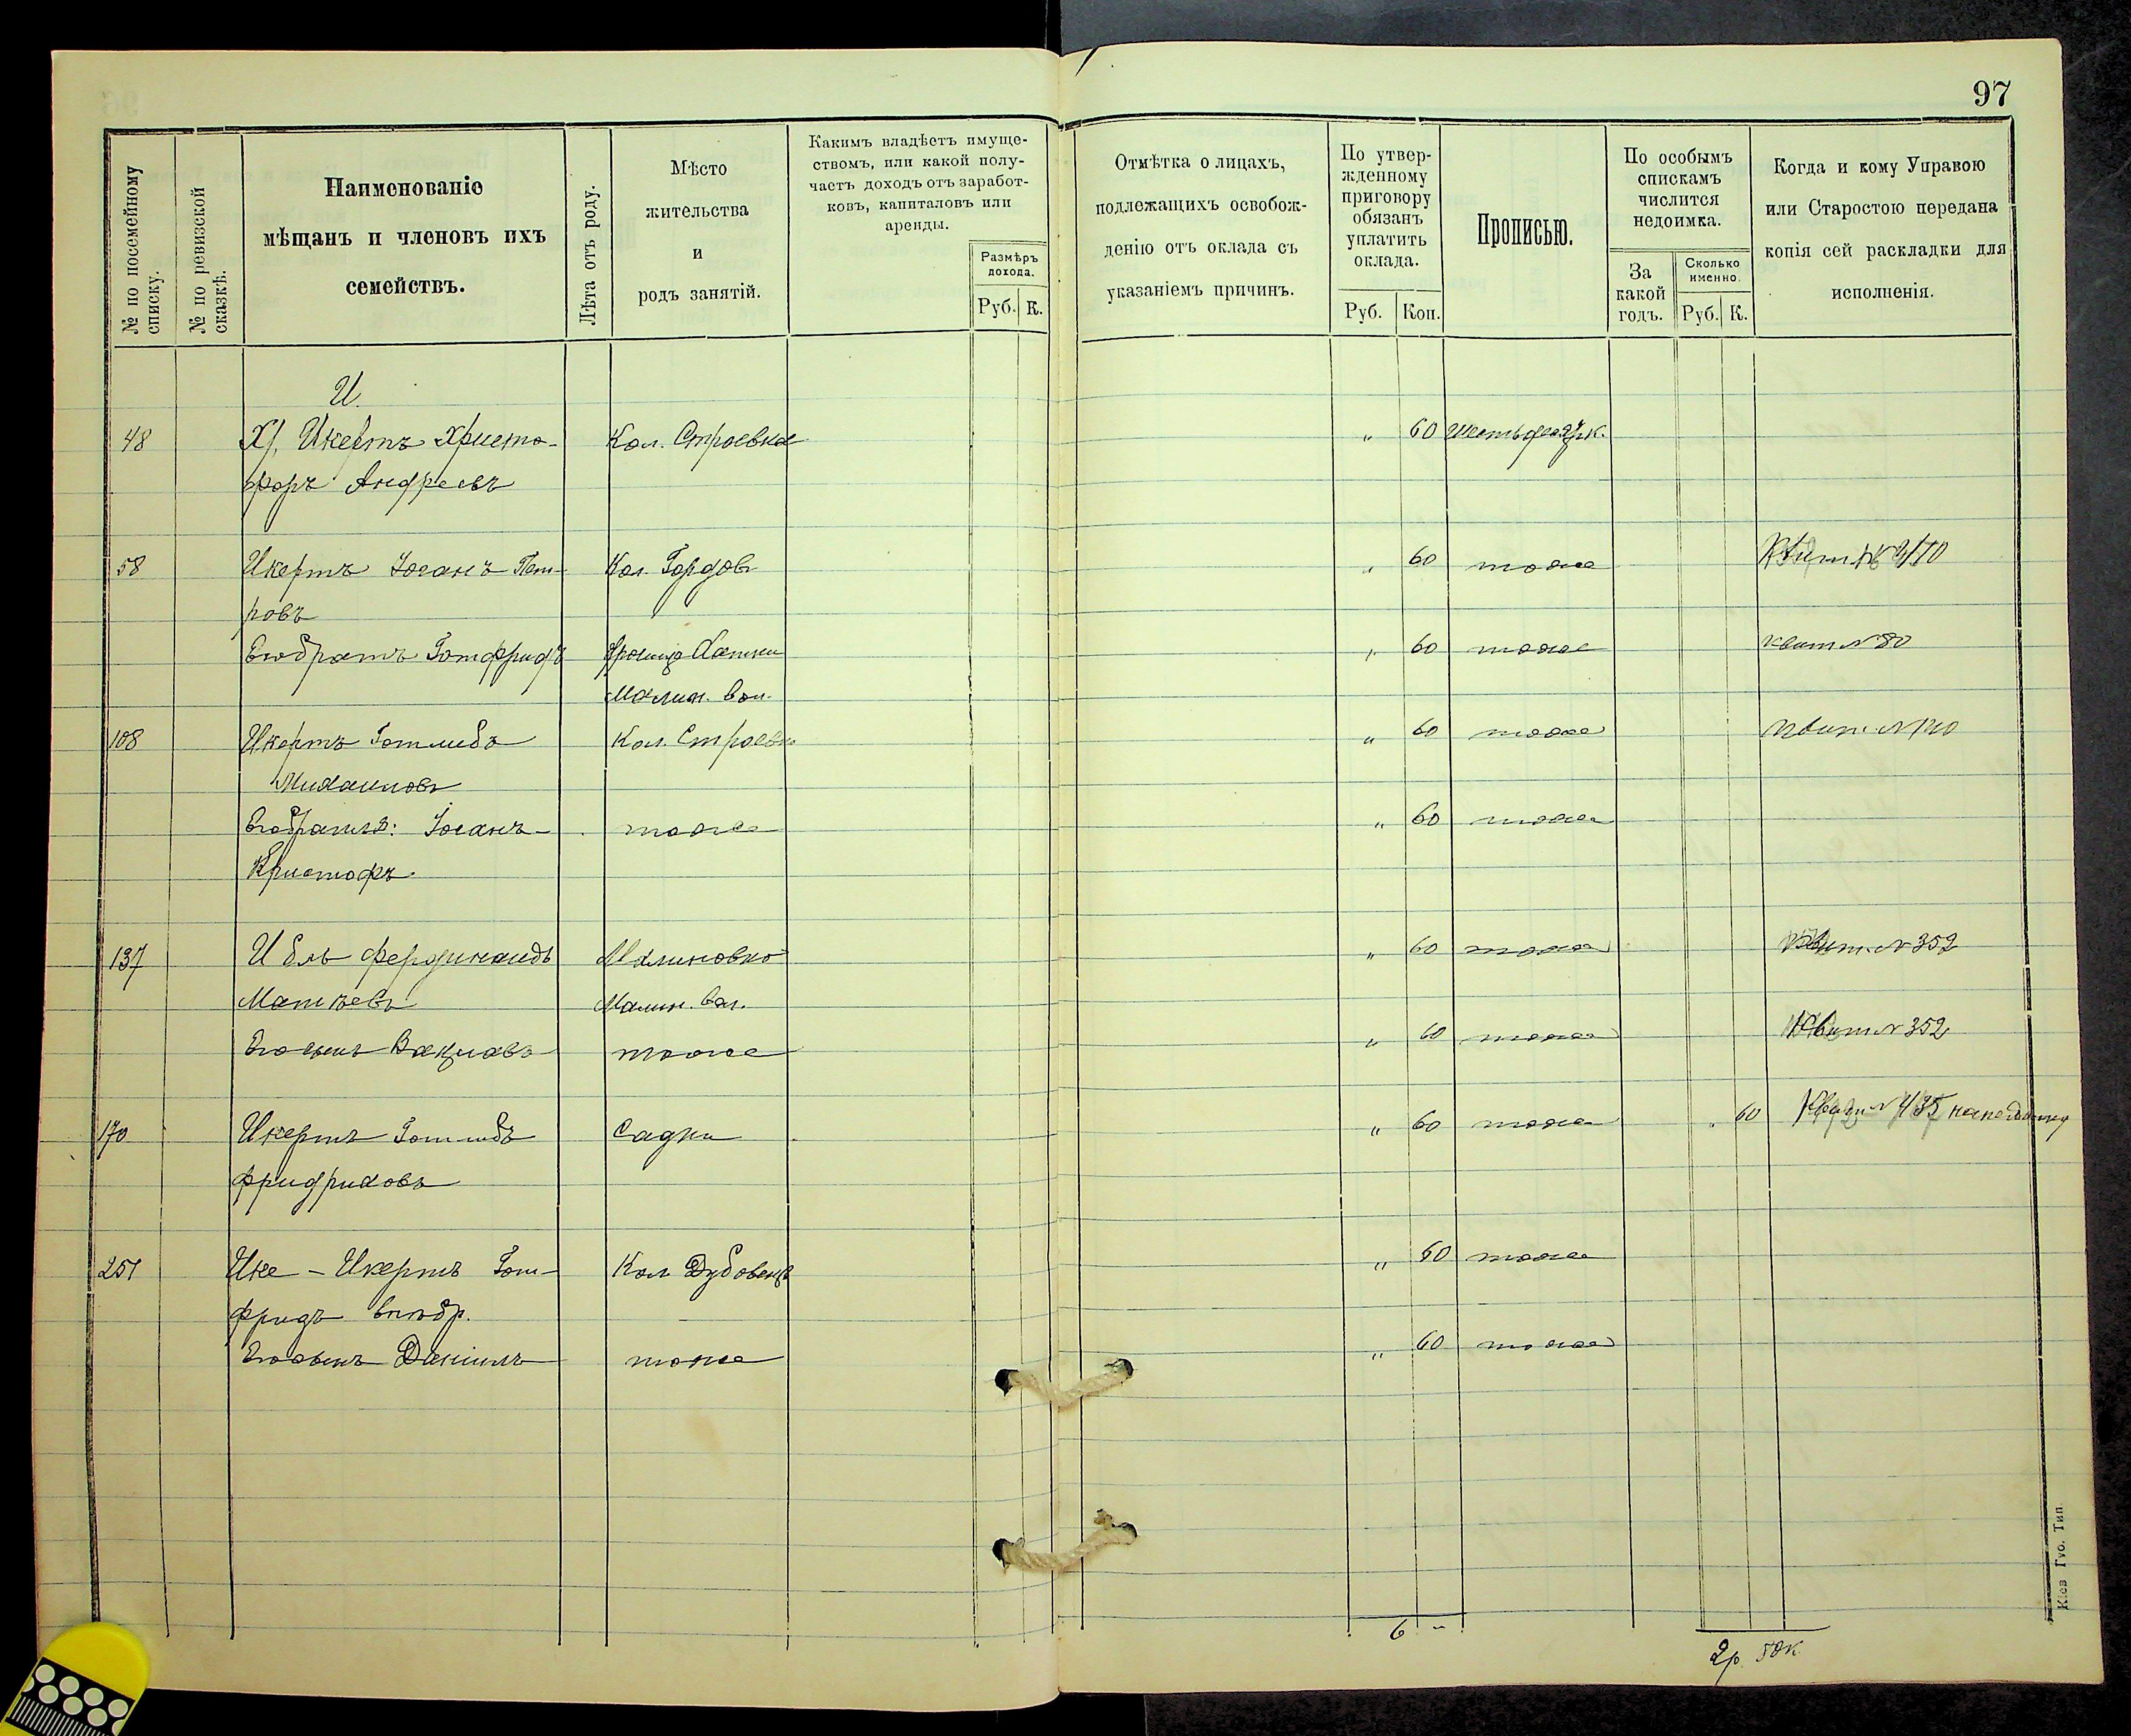 97
№ по посемейному списку.
№ по ревизской сказкѣ.
Наименованіе
мѣщанъ и членовъ ихъ
семействъ.
Лѣта отъ роду.
Мѣсто
жительства
и
родъ занятій.
Какимъ владѣетъ имуще-
ствомъ, или какой полу-
чаетъ доходъ отъ заработ-
ковъ, капиталовъ или
аренды.
Размѣръ
дохода.
Руб. К.
Отмѣтка о лицахъ,
подлежащихъ освобож-
денію отъ оклада съ
указаніемъ причинъ.
По утвер-
жденному
приговору
обязанъ
уплатить
оклада.
Руб. Коп.
Прописью.
По особымъ
спискамъ
числится
недоимка.
За
какой
годъ.
Сколько
именно.
Руб. К.
Когда и кому Управою
или Старостою передана
копія сей раскладки для
исполненія.
И.
48 Икертъ Христо- Кол. Строевка " 60 шестьдесят к.
форъ Андреевъ
58 Икертъ Іоганъ Пет- Кол. " 60 тоже
ровъ
Его братъ Готфридъ " 60 тоже квит № 80
Малин. вол.
108 Икертъ Готлибъ Кол. Строевка " 60 тоже квит. №
Михаиловъ
Его братъ: Іоганъ- тоже " 60 тоже
Кристофъ
137 Ибль Фердинандъ Малиновка " 60 тоже Квит № 352
Матвѣевъ Малин. вол.
Его сынъ Вацлавъ тоже " 60 тоже Квит № 352
170 Икертъ Готлибъ Садки " 60 тоже " 60 Квит №
Фридриховъ
251 Ике - Икертъ Гот- Кол " 60 тоже
фридъ
Его сынъ Даніилъ тоже " 60 тоже
6 "
2р. к
Кіев Гуо. Тип.